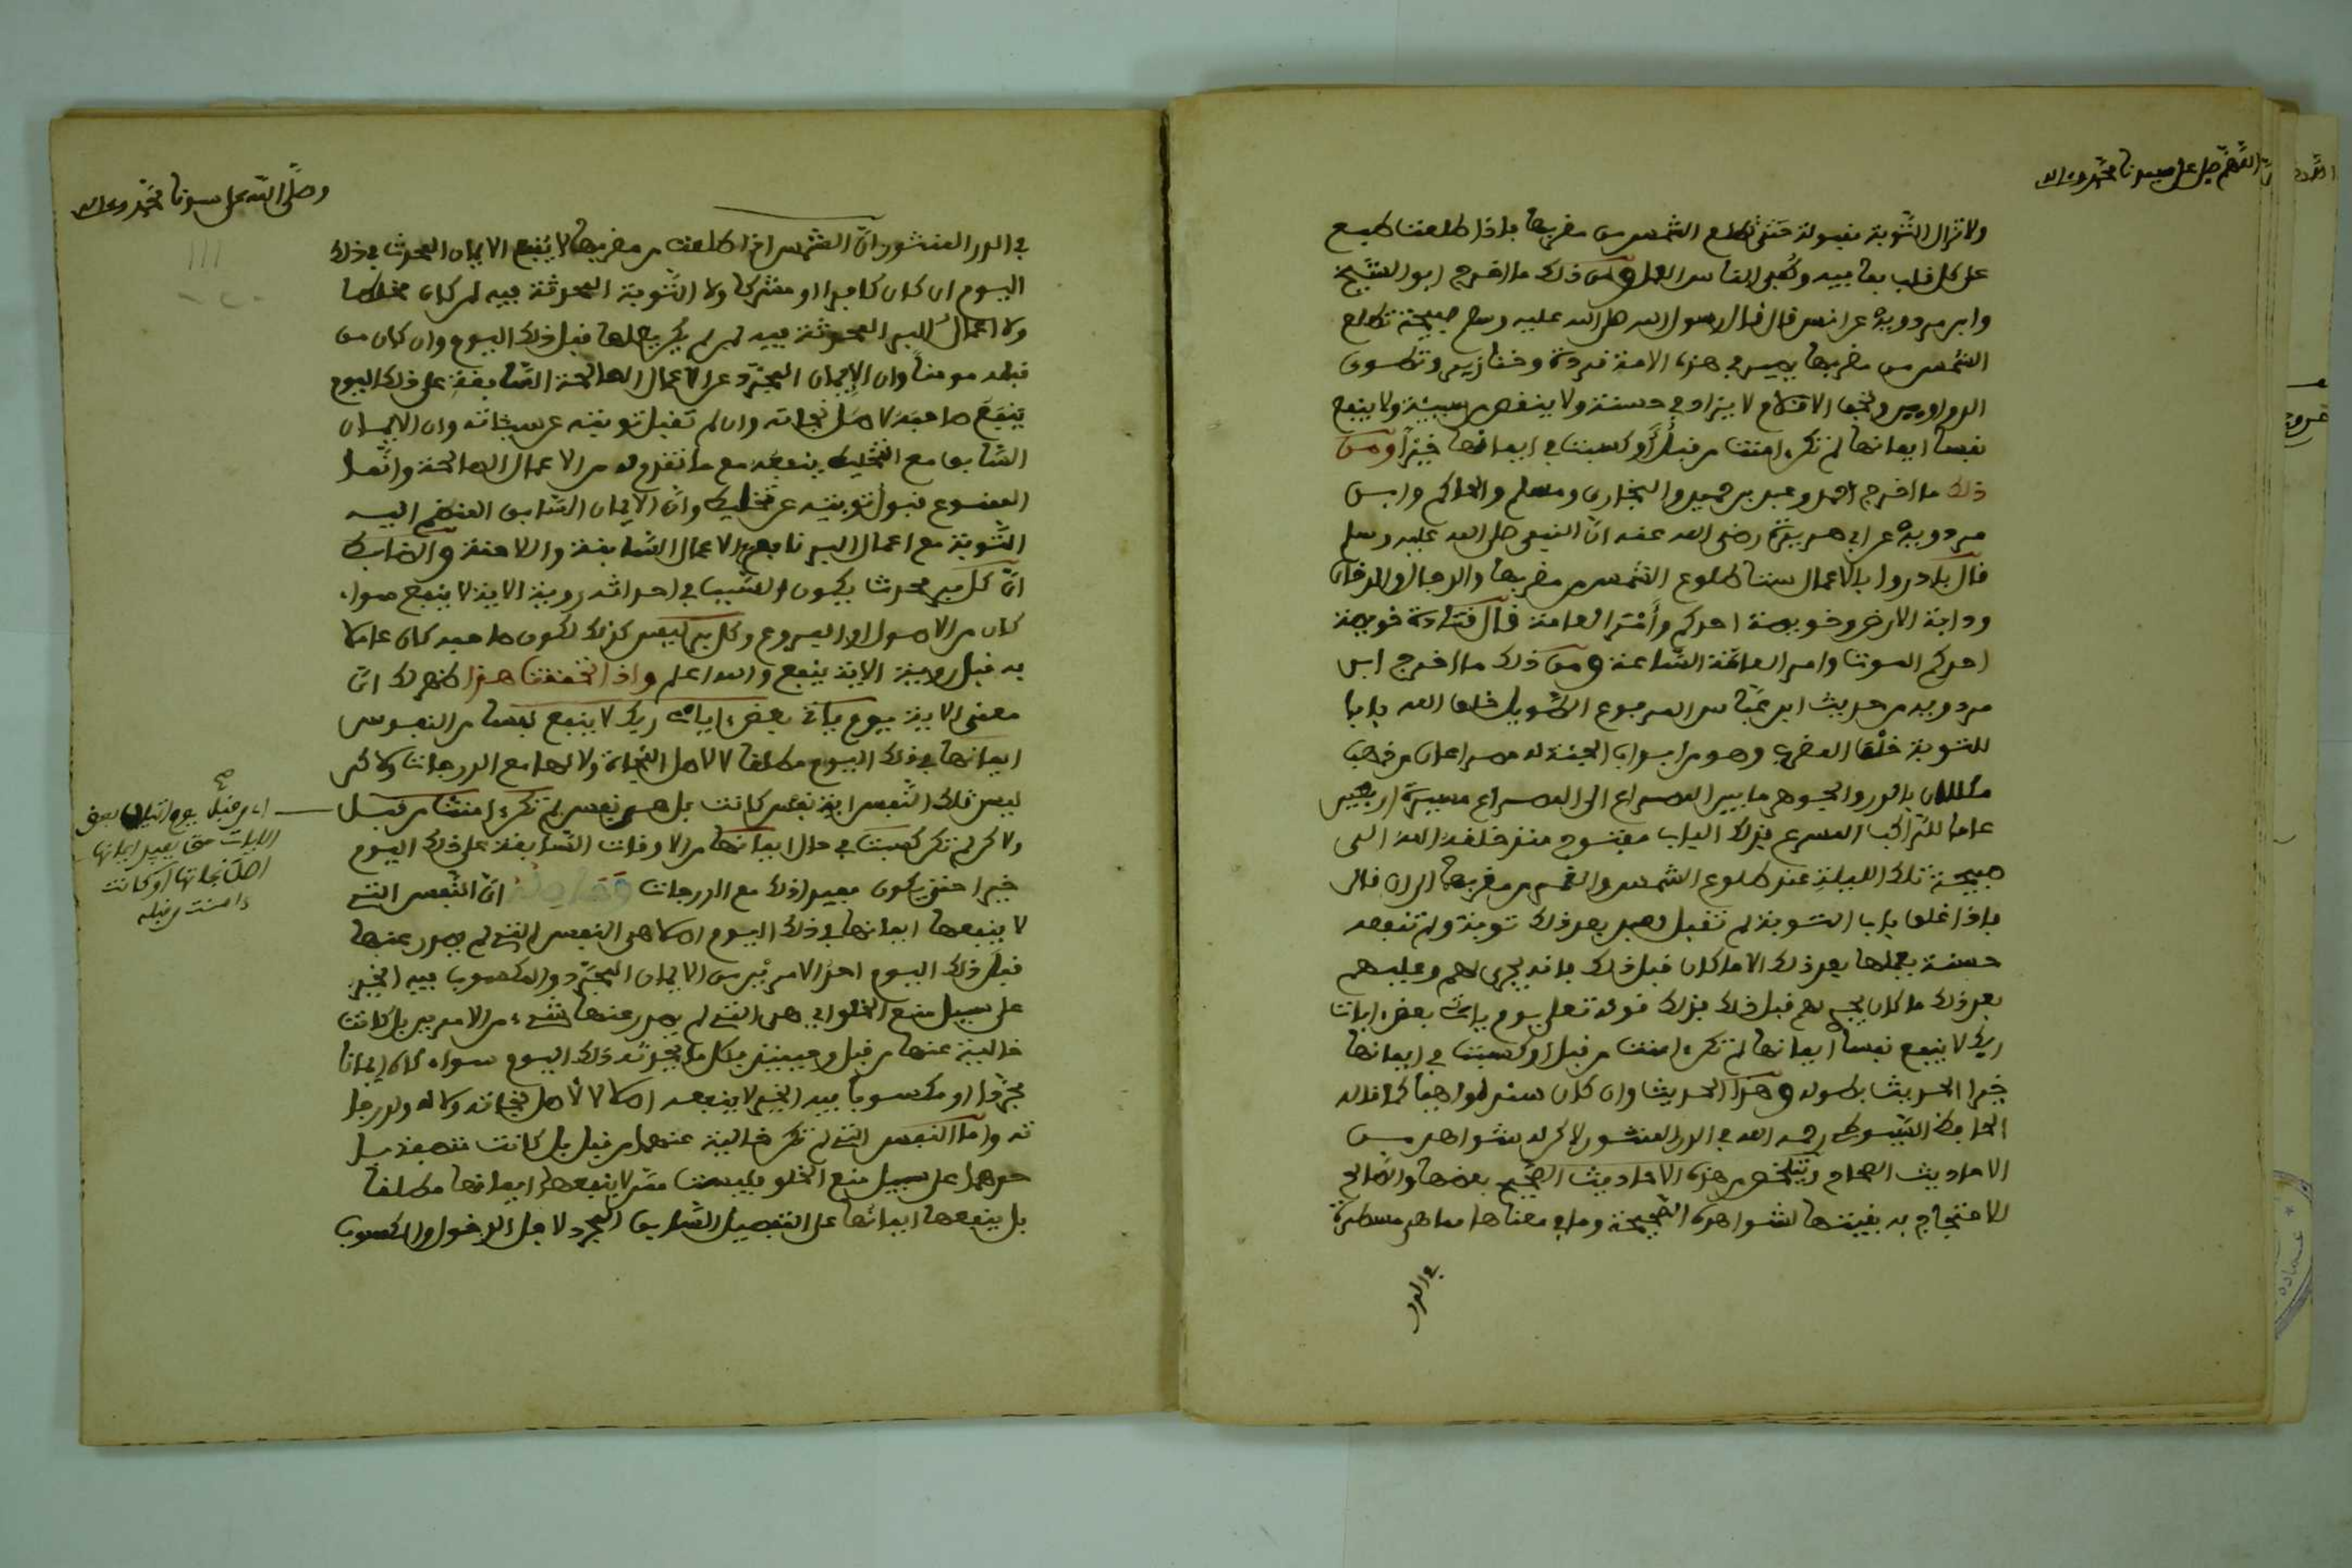 اللهم صل على سيدنا محمد وءاله
ولا تزال التوبة مقبولة حتى تطلع الشمس من مغربها فإذا طلعت طبع
على كل قلب بما فيه وكفى الناس العمل ومن ذلك ما اخرج ابو الشيخ
وابن مردويه عن انس قال قال رسول الله صلى الله عليه وسلم صبيحة تطلع
الشمس من مغربها يصير في هذه الامة قردة وخنازير وتطوى
الدواوين وتجف الاقلام لا يزاد في حسنة ولا ينقص من سيئة ولا ينفع
نفسا ايمانها لم تكن ءامنت من قبل أو كسبت في ايمانها خيرا ومن
ذلك ما اخرج احمد وعبد بن حميد والبخاري ومسلم والحاكم وابن
مردويه عن ابي هريرة رضي الله عنه ان النبي صلى الله عليه وسلم
قال بادروا بالاعمال ستا طلوع الشمس من مغربها والدجال والدخان
ودابة الارض وخويصة احدكم وأمر العامة قال قتادة خويصة
احدكم الموت وامر العامة الساعة ومن ذلك ما اخرج ابن
مردويه من حديث ابن عباس المرفوع الطويل خلق الله بابا
للتوبة خلف المغرب وهو من ابواب الجنة له مصراعان من ذهب
مكللان بالدر والجوهر ما بين المصراع الى المصراع مسيرة اربعين
عاما للراكب المسرع فذلك الباب مفتوح منذ خلقه الله الى
صبيحة تلك الليلة عند طلوع الشمس والقمر من مغربها الى ان قال
فإذا اغلق باب التوبة لم تقبل لعبد بعد ذلك توبة ولم تنفعه
حسنة يعملها بعد ذلك الا ما كان قبل ذلك فانه يجري لهم وعليهم
بعد ذلك ما كان يجري لهم قبل ذلك فذلك قوله تعلى يوم يأتي بعض ءايات
ربك لا ينفع نفسا ايمانها لم تكن ءامنت من قبل او كسبت في ايمانها
خيرا الحديث بطوله وهذا الحديث وان كان سنده واهيا كما قاله
الحافظ السيوطي رحمه الله في الدر المنثور لاكن له شواهد من
الاحاديث الصحاح فتلخص من هذه الاحاديث الصحيح بعضها والصالح
للاحتجاج به بقيتها لشواهده الصحيحة وما في معناها مما هو مسطر
في الدر
وصلى الله على سيدنا محمد وءاله
في الدر المنثور ان الشمس اذا طلعت من مغربها لا ينفع الايمان المحدث في ذلك
اليوم ان كان كافرا او مشركا ولا التوبة المحدثة فيه لمن كان مخلطا
ولا اعمال البر المحدثة فيه لمن لم يكن يعملها قبل ذلك اليوم وان كان من
قبله مومنا وان الايمان المجرد عن الاعمال الصالحة السابقة على ذلك اليوم
ينفع صاحبه لاصل نجاته وان لم تقبل توبته عن سيئاته وان الايمان
السابق مع التخليط ينفعه مع ما تقدم له من الاعمال الصالحة وانما
الممنوع قبول توبته عن تخليطه وان الايمان السابق المنضم اليه
التوبة مع اعمال البر نافع الاعمال السابقة واللاحقة والضابط
ان كل بر محدث يكون السبب في احداثه روية الاية لا ينفع سواء
كان من الاصول او الفروع وكل بر ليس كذلك لكون صاحبه كان عاملا
به قبل روية الاية ينفع والله اعلم واذا تحققت هذا ظهر لك ان
معنى الاية يوم يأتي بعض ءايات ربك لا ينفع نفسا من النفوس
ايمانها في ذلك اليوم مطلقا لا لاصل النجاة ولا لها مع الدرجات ولاكن
ليس تلك النفس اية نفس كانت بل هي نفس لم تكن ءامنت من قبل
ولاكن لم تكن كسبت في حال ايمانها من الاوقات السابقة على ذلك اليوم
خيرا حتى يكون مفيدا ذلك مع الدرجات وحاصله ان النفس التي
لا ينفعها ايمانها في ذلك اليوم اصلا هي النفس التي لم يصدر عنها
قبل ذلك اليوم احد الامرين من الايمان المجرد والمكسوب فيه الخير
على سبيل منع الخلو اي هي التي لم يصدر عنها شيء من الامرين بل كانت
خالية عنهما من قبل وحينئذ فكل ما يحدثه ذلك اليوم سواء كان ايمانا
مجردا او مكسوبا فيه الخير لا ينفعه اصلا لا لأصل نجاته ولا له ولدرجا
ته واما النفس التي لم تكن خالية عنهما من قبل بل كانت متصفة بـ
حدهما على سبيل منع الخلو فليست ممن لا ينفعها ايمانها مطلقا
بل ينفعها ايمانها على التفصيل السابق المجرد لاصل الدخول والمكسوب
صح
اي من قبل يوم اتيان بعض
الايات حتى يفيد ايمانها
اصل نجاتها او كانت
ءامنت من قبله